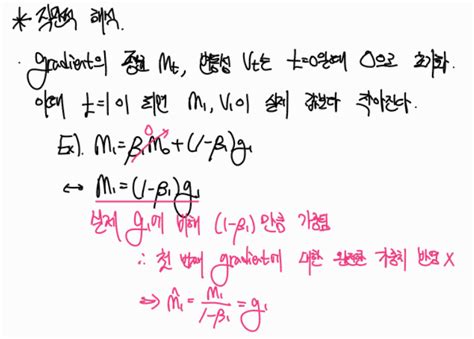 * 직관적 해석.
· gradient의 평균 Mt, 변동성 Vt는 t=0일때 0으로 초기화.
이때 t=1이 되면 M₁, V₁이 실제 값보다 작아진다.
Ex). M₁=β₁M₀+(1-β₁)g₁
0
↔ M₁=(1-β₁)g₁
실제 g₁에 비해 (1-β₁)만큼 가중됨
∴ 첫 번째 gradient에 대한 완전한 가중치 반영 X
⇔ m̂₁ = M₁/1-β₁ = g₁